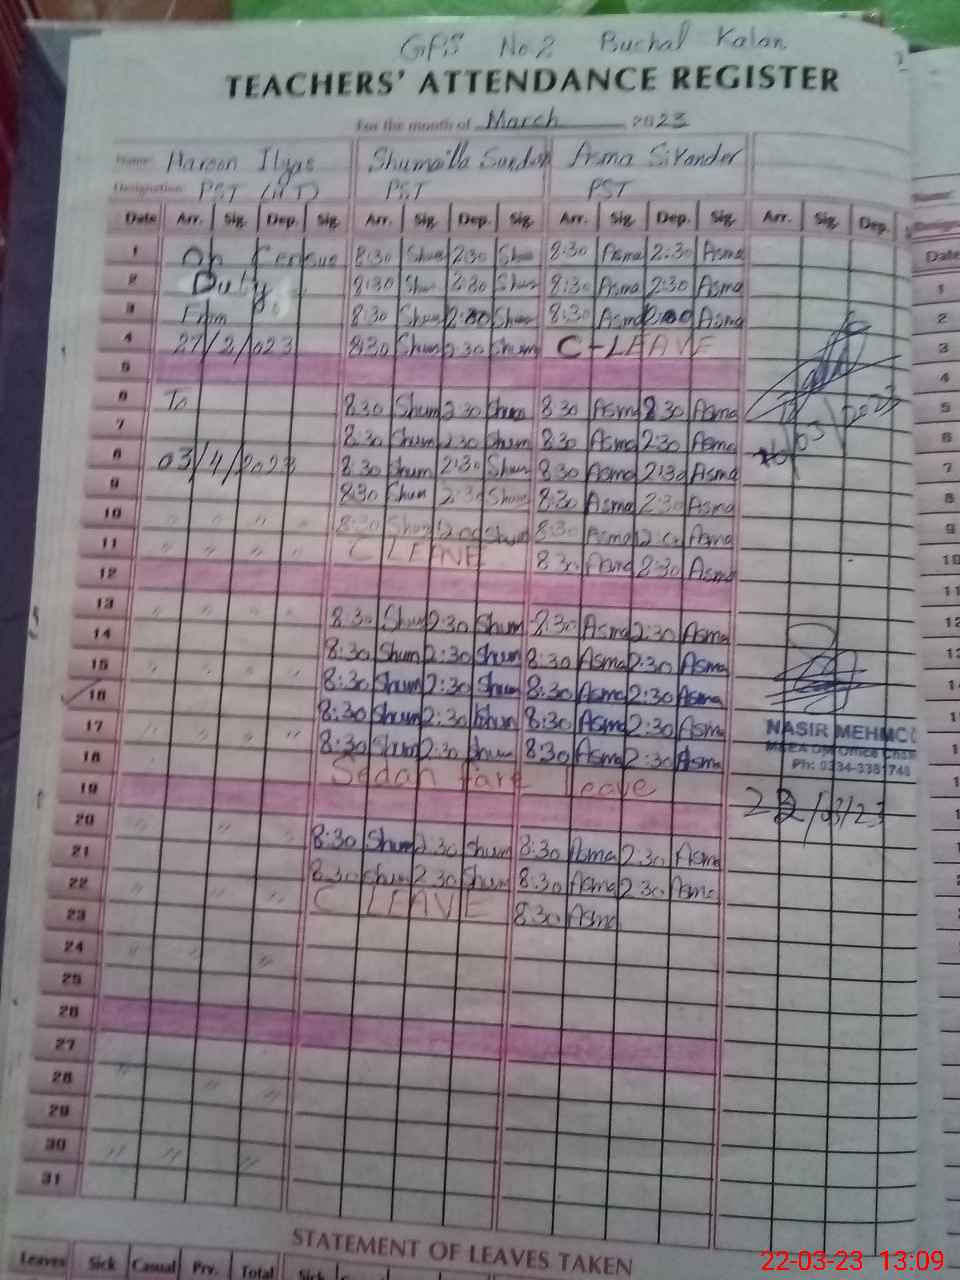 GPS No 2 Buchal Kalan
TEACHERS' ATTENDANCE REGISTER
For the month of March 2023
Name: Haroon Ilyas Shumaila Asma Sikander
Designation: PST (HT) PST PST
Date Arr. Sig. Dep. Sig. Arr. Sig. Dep. Sig. Arr. Sig. Dep. Sig. Arr. Sig. Dep.
1 On Census 8:30 Shum 2:30 Shum 8:30 Asma 2:30 Asma
2 Duty 8:30 Shum 2:30 Shum 8:30 Asma 2:30 Asma
3 From 8:30 Shum Shum 8:30 Asma Asma
4 27/2/023 8:30 Shum 2:30 Shum C-LEAVE
5
6 To 8:30 Shum 2:30 Shum 8:30 Asma 8:30 Asma
7 8:30 Shum 2:30 Shum 8:30 Asma 2:30 Asma
8 03/4/2023 8:30 Shum 2:30 Shum 8:30 Asma 2:30 Asma
9 8:30 Shum 2:30 Shum 8:30 Asma 2:30 Asma
10 " " " " 8:30 Shum Shum 8:30 Asma Asma
11 " " " " C LEAVE 8:30 Asma 2:30 Asma
12
13 " " " " 8:30 Shum 2:30 Shum 8:30 Asma 2:30 Asma
14 8:30 Shum 2:30 Shum 8:30 Asma 2:30 Asma
15 " " " " 8:30 Shum 2:30 Shum 8:30 Asma 2:30 Asma
16 8:30 Shum 2:30 Shum 8:30 Asma 2:30 Asma
17 " " " " 8:30 Shum 2:30 Shum 8:30 Asma 2:30 Asma
NASIR MEHMO
MEA DM Office
Ph: 0334-3381748
18 Leave
19
22/03/23
20 " " "
21 8:30 Shum 2:30 Shum 8:30 Asma 2:30 Asma
22 " " " 8:30 Shum 2:30 Shum 8:30 Asma 2:30 Asma
23 C LEAVE 8:30 Asma
24 " " "
25
26
27
28 " " "
29
30 " " "
31
STATEMENT OF LEAVES TAKEN
Leaves Sick Casual Prv. Total Sick
Name:
Date
1
2
3
4
5
6
7
8
9
10
11
12
22-03-23 13:09